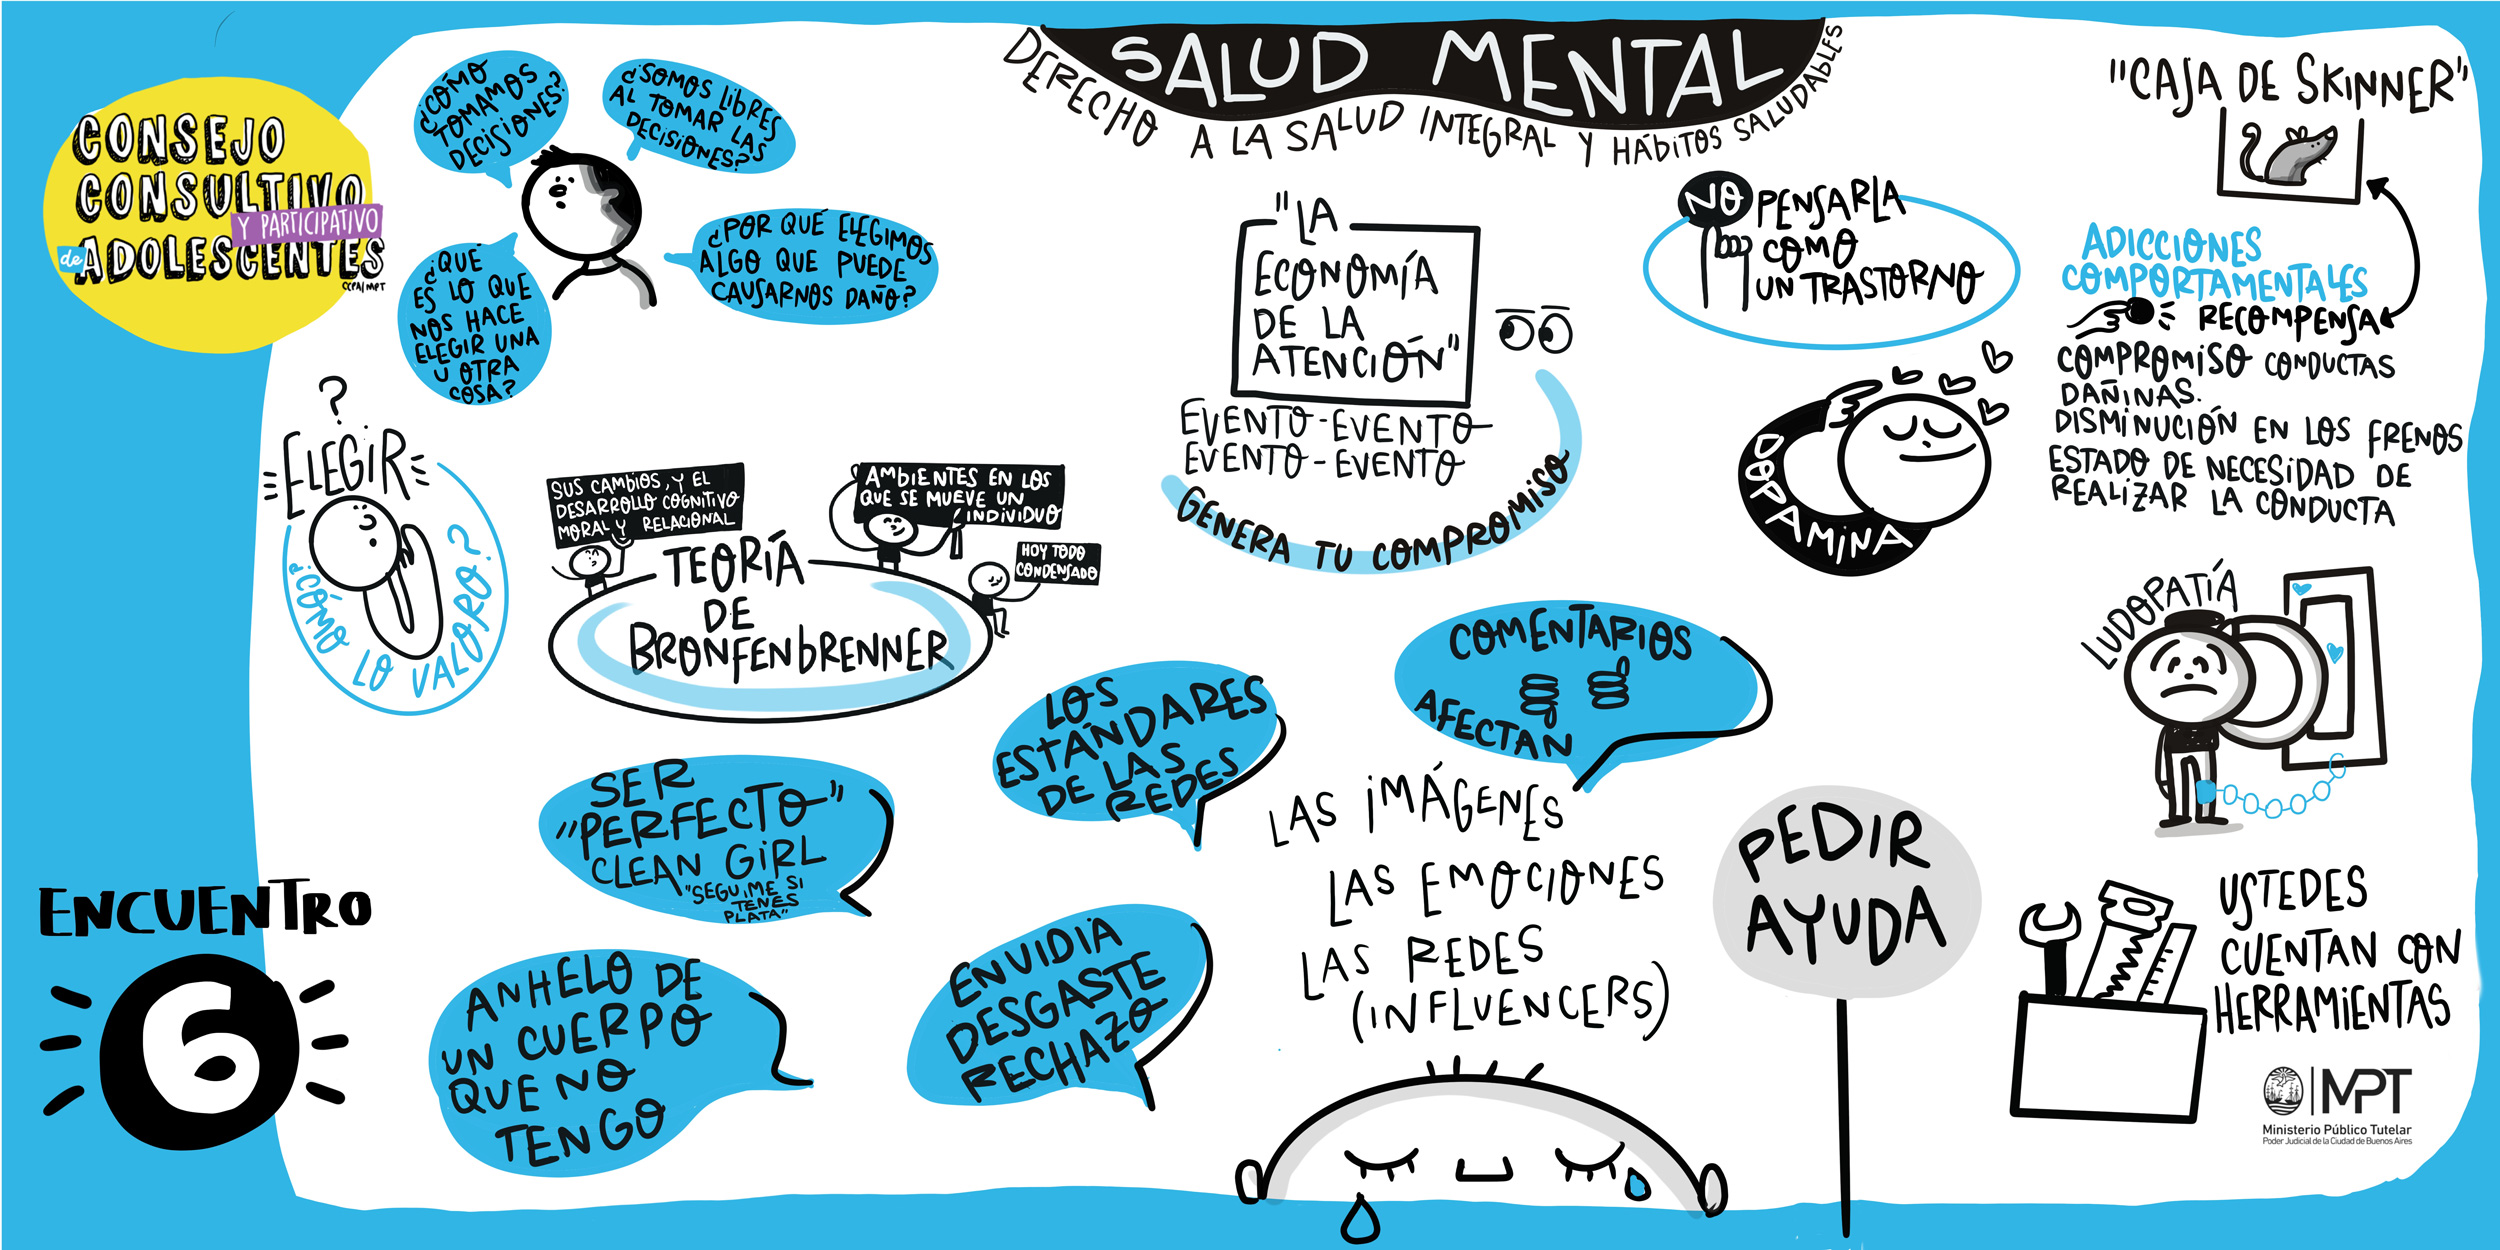 CONSEJO
CONSULTIVO
Y PARTICIPATIVO
de ADOLESCENTES
CCPA/MPT
¿CÓMO
TOMAMOS
DECISIONES?
¿SOMOS LIBRES
AL TOMAR LAS
DECISIONES?
¿QUÉ
ES LO QUE
NOS HACE
ELEGIR UNA
U OTRA
COSA?
¿POR QUÉ ELEGIMOS
ALGO QUE PUEDE
CAUSARNOS DAÑO?
SALUD MENTAL
DERECHO A LA SALUD INTEGRAL Y HÁBITOS SALUDABLES
"LA
ECONOMÍA
DE LA
ATENCIÓN"
EVENTO-EVENTO
EVENTO-EVENTO
GENERA TU COMPROMISO
NO PENSARLA
COMO
UN TRASTORNO
"CAJA DE SKINNER"
ADICCIONES
COMPORTAMENTALES
RECOMPENSA
COMPROMISO CONDUCTAS
DAÑINAS.
DISMINUCIÓN EN LOS FRENOS
ESTADO DE NECESIDAD DE
REALIZAR LA CONDUCTA
DOPAAMINA
?
ELEGIR
¿CÓMO LO VALORO?
SUS CAMBIOS, Y EL
DESARROLLO COGNITIVO
MORAL Y RELACIONAL
AMBIENTES EN LOS
QUE SE MUEVE UN
INDIVIDUO
HOY TODO
CONDENSADO
TEORÍA
DE
BRONFENBRENNER
LOS
ESTÁNDARES
DE LAS
REDES
COMENTARIOS
AFECTAN
LUDOPATÍA
SER
"PERFECTO"
CLEAN GIRL
"SEGUIME SI
TENES
PLATA"
LAS IMÁGENES
LAS EMOCIONES
LAS REDES
(INFLUENCERS)
PEDIR
AYUDA
USTEDES
CUENTAN CON
HERRAMIENTAS
ENCUENTRO
6
ANHELO DE
UN CUERPO
QUE NO
TENGO
ENVIDIA
DESGASTE
RECHAZO
MPT
Ministerio Público Tutelar
Poder Judicial de la Ciudad de Buenos Aires